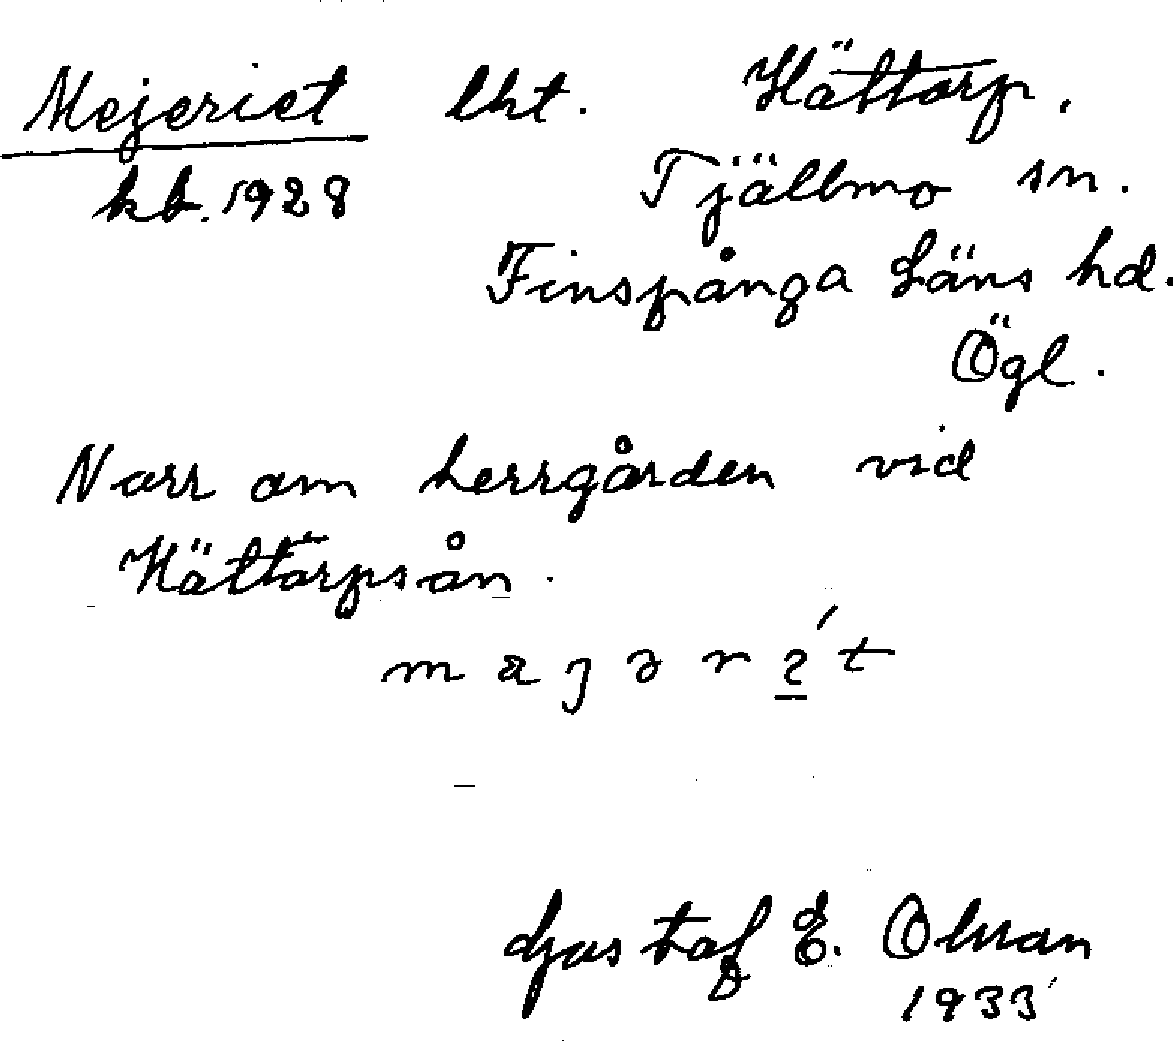 Mejeriet lht. Hättorp.
kb. 1928 Tjällmo sn.
Finspånga Läns hd.
Ögl.
Norr om herrgården vid
Hättorpsån.
Gustaf E. Olsson
1933